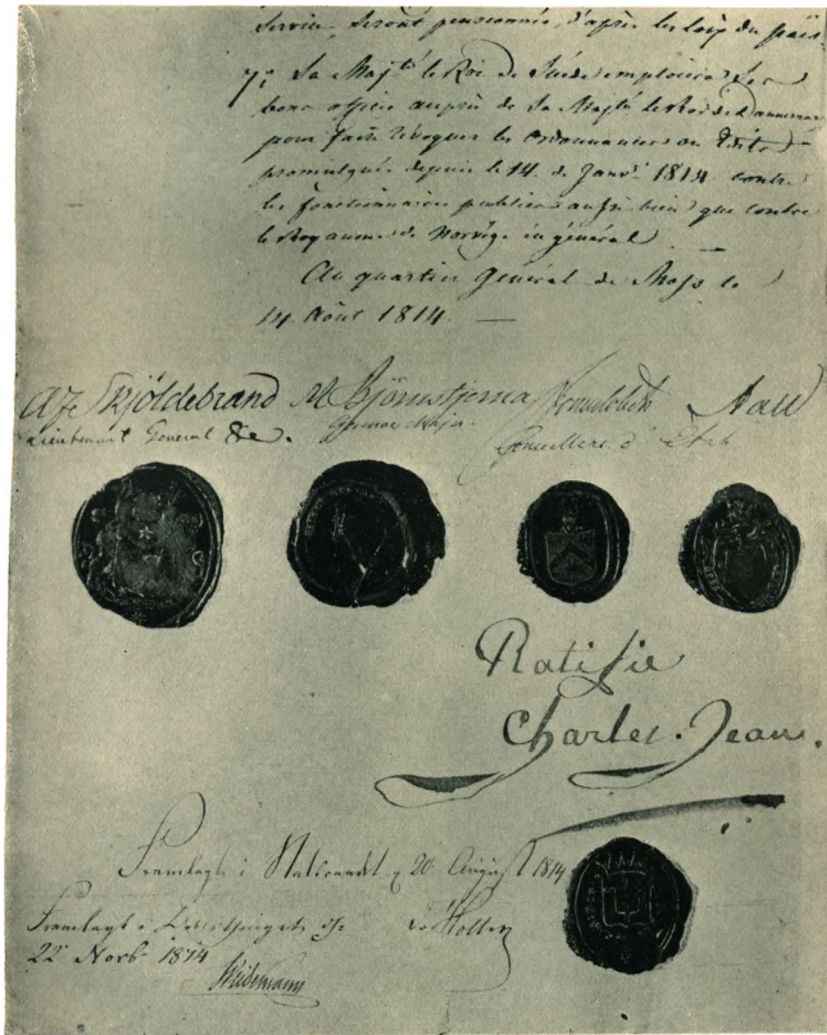 service, seront pensionnés, d'après les loix du païs.
7º Sa Majté le Roi de Suède emploiera Ses
bons offices auprès de Sa Majté le Roi de Dannemarc
pour faire révoquer les Ordonnances ou Edits
promulgués depuis le 14. de Janvr 1814 contre
les fonctionnaires publics aussi bien que contre
le Royaume de Norvège en général
Au quartier Général de Moss le
14. Août 1814. —
AF Skjöldebrand M Björnstjerna Aall
Lieutenant General &c. General Major. Conseillers d'Etat
Ratifié
Charles Jean.
Fremlagt i Statsraadet d 20 August 1814
Fremlagt i v Holten
22 Novbr 1814
Weidemann